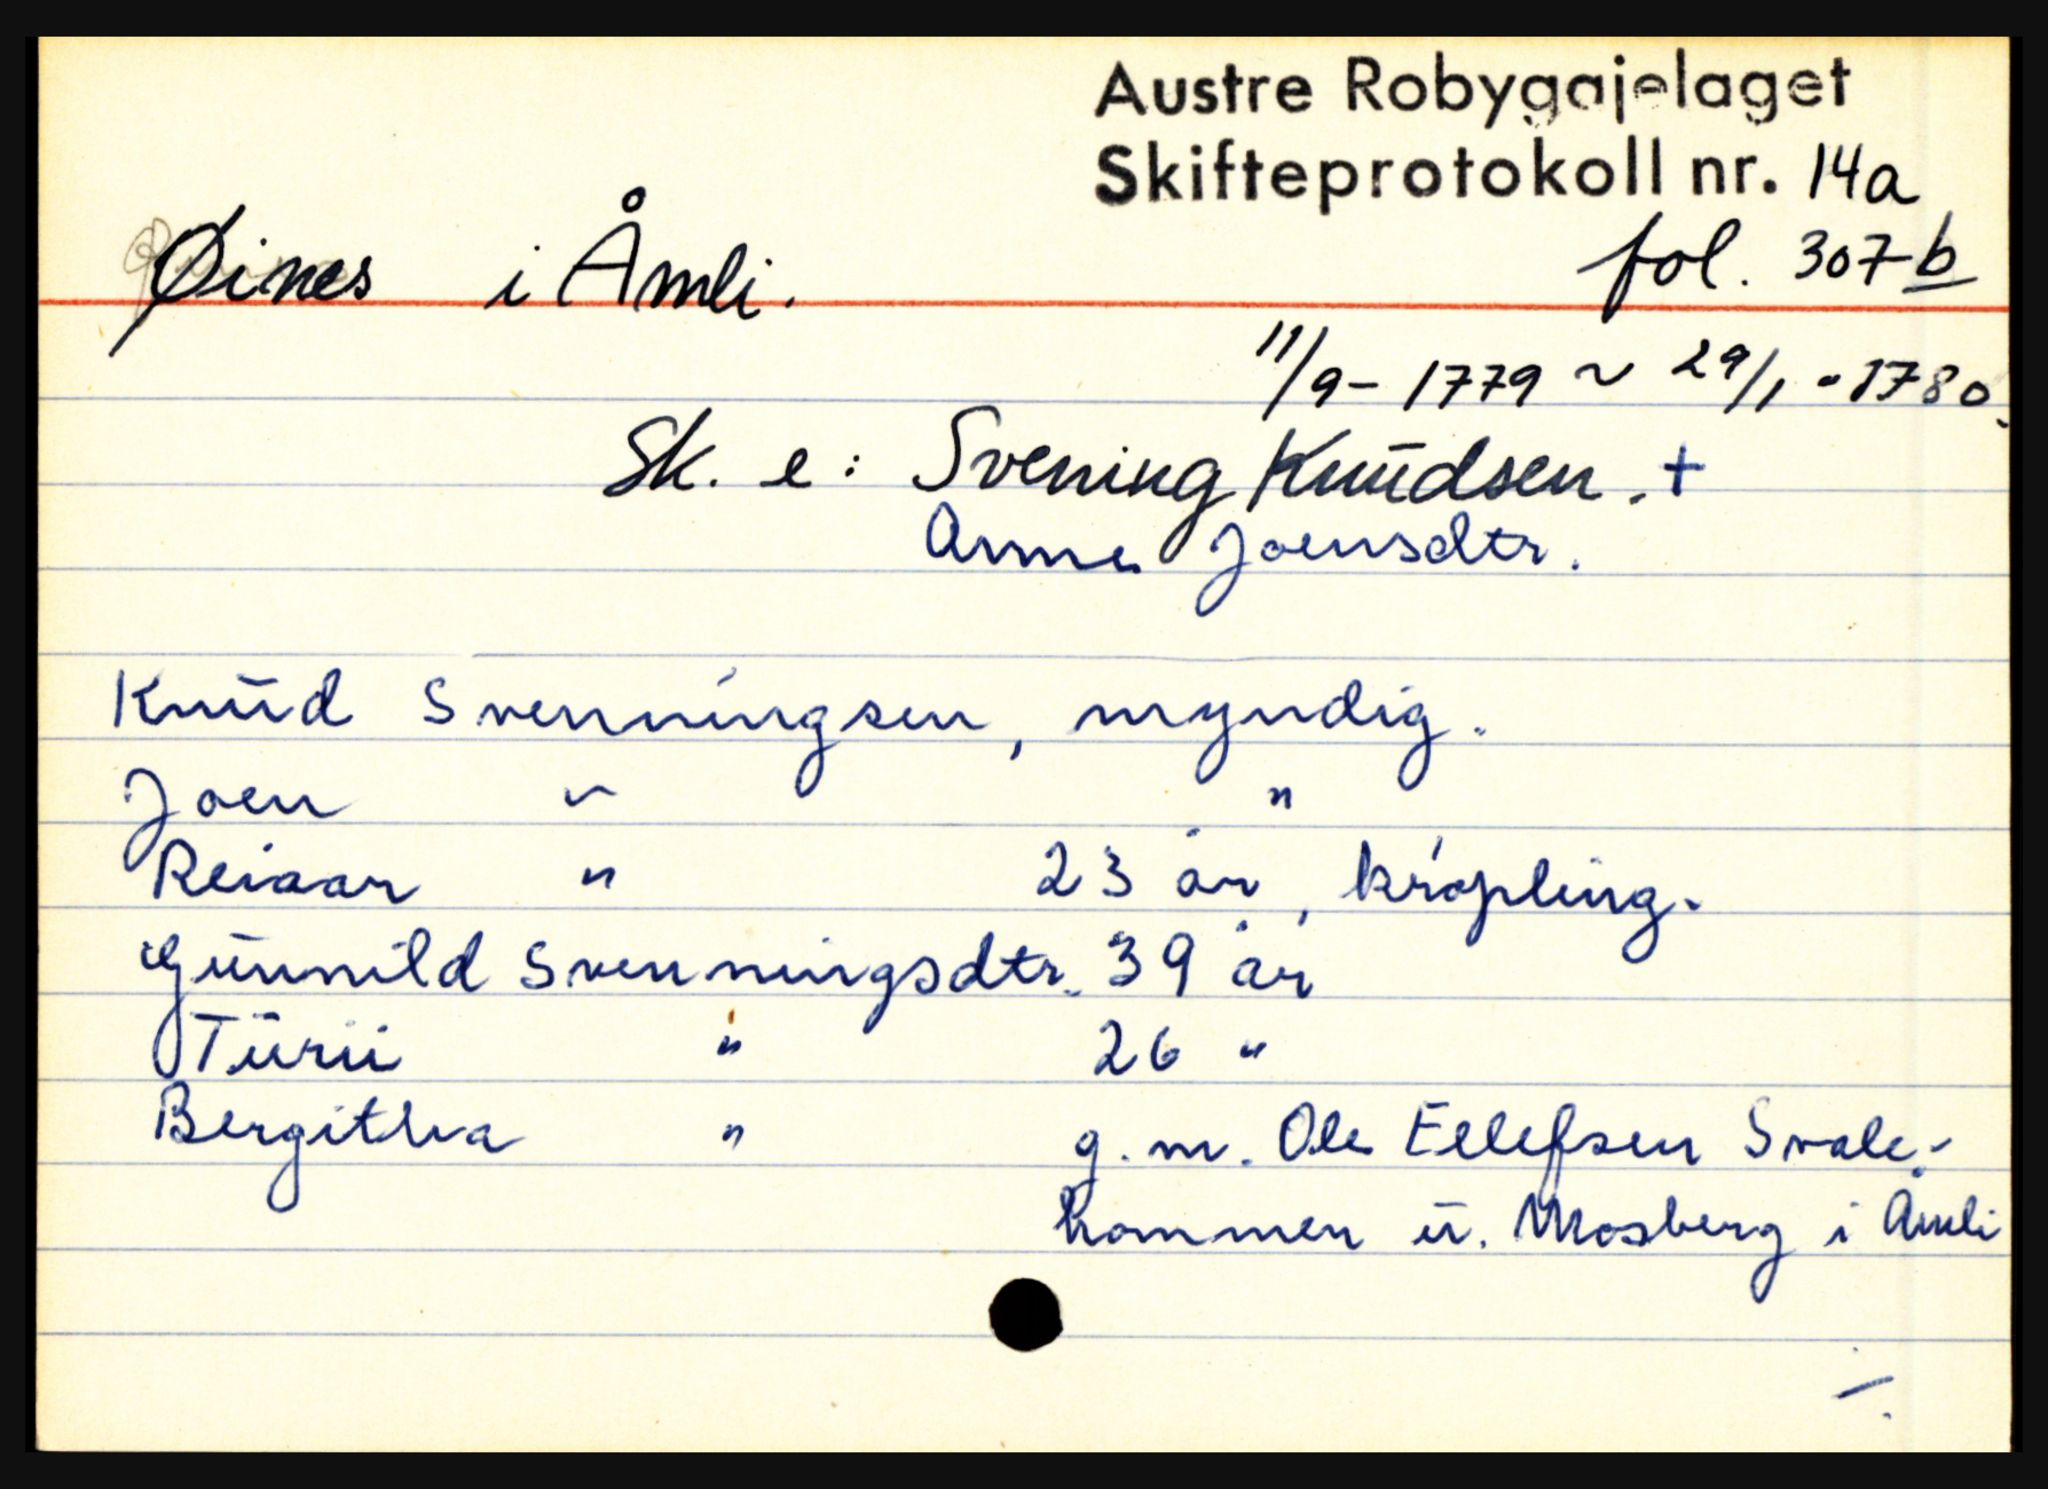 Austre Robygdelaget
Skifteprotokoll nr. 14a
Øines i Åmli. fol. 307 b
11/9 - 1779 ~ 29/1 - 1780.
Sk. e: Svening Knudsen. +
Anne Joensdtr.
Knud Svenningsen, myndig.
Joen " "
Reiaar " 23 år, krøpling.
Gunnild Svenningsdtr. 39 år
Turii " 26 "
Bergitha " g. m. Ole Ellefsen Svale-
hommen u. Mosberg i Åmli